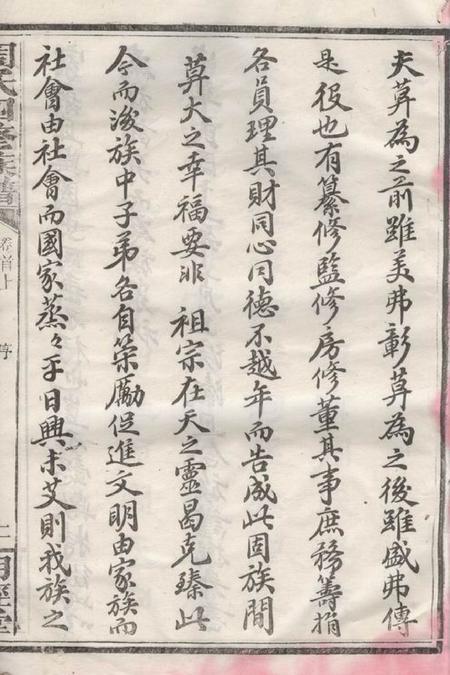 夫莫為之前雖美弗彰莫為之後雖盛弗傳
是役也有纂修監修房修董其事庶務籌捐
各員理其財同心同德不越年而告成此固族間
莫大之幸福要非 祖宗在天之靈曷克臻此
今而後族中子弟各自策勵促進文明由家族而
社會由社會而國家蒸々乎日興未艾則我族之
周氏四修族譜
卷首上
序